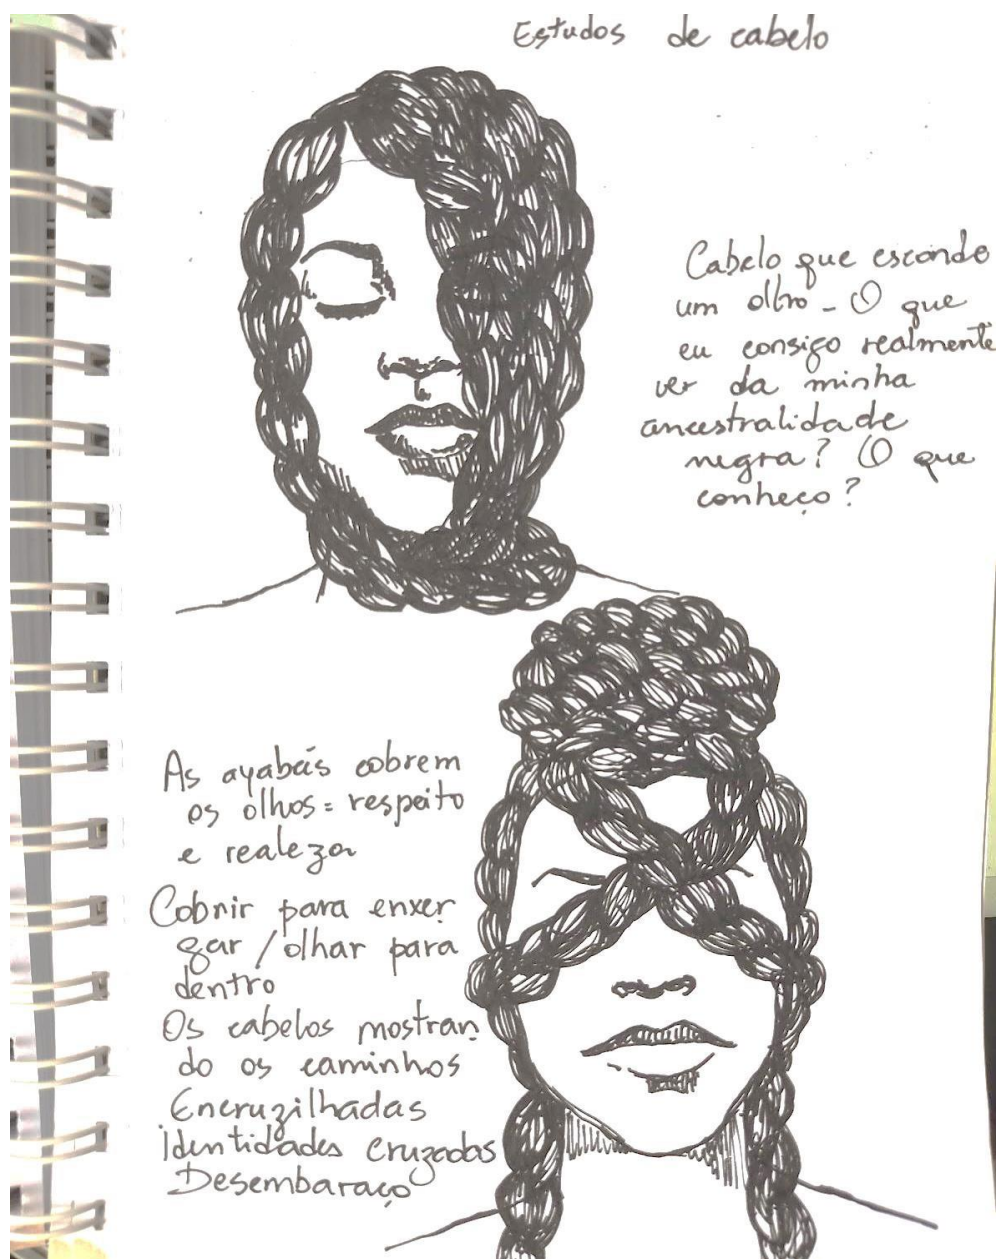 Estudos de cabelo
Cabelo que esconde
um olho - O que
eu consigo realmente
ver da minha
ancestralidade
negra? O que
conheço?
As ayabás cobrem
os olhos = respeito
e realeza
Cobrir para enxer
gar / olhar para
dentro
Os cabelos mostran
do os caminhos
Encruzilhadas
Identidades cruzadas
Desembaraço